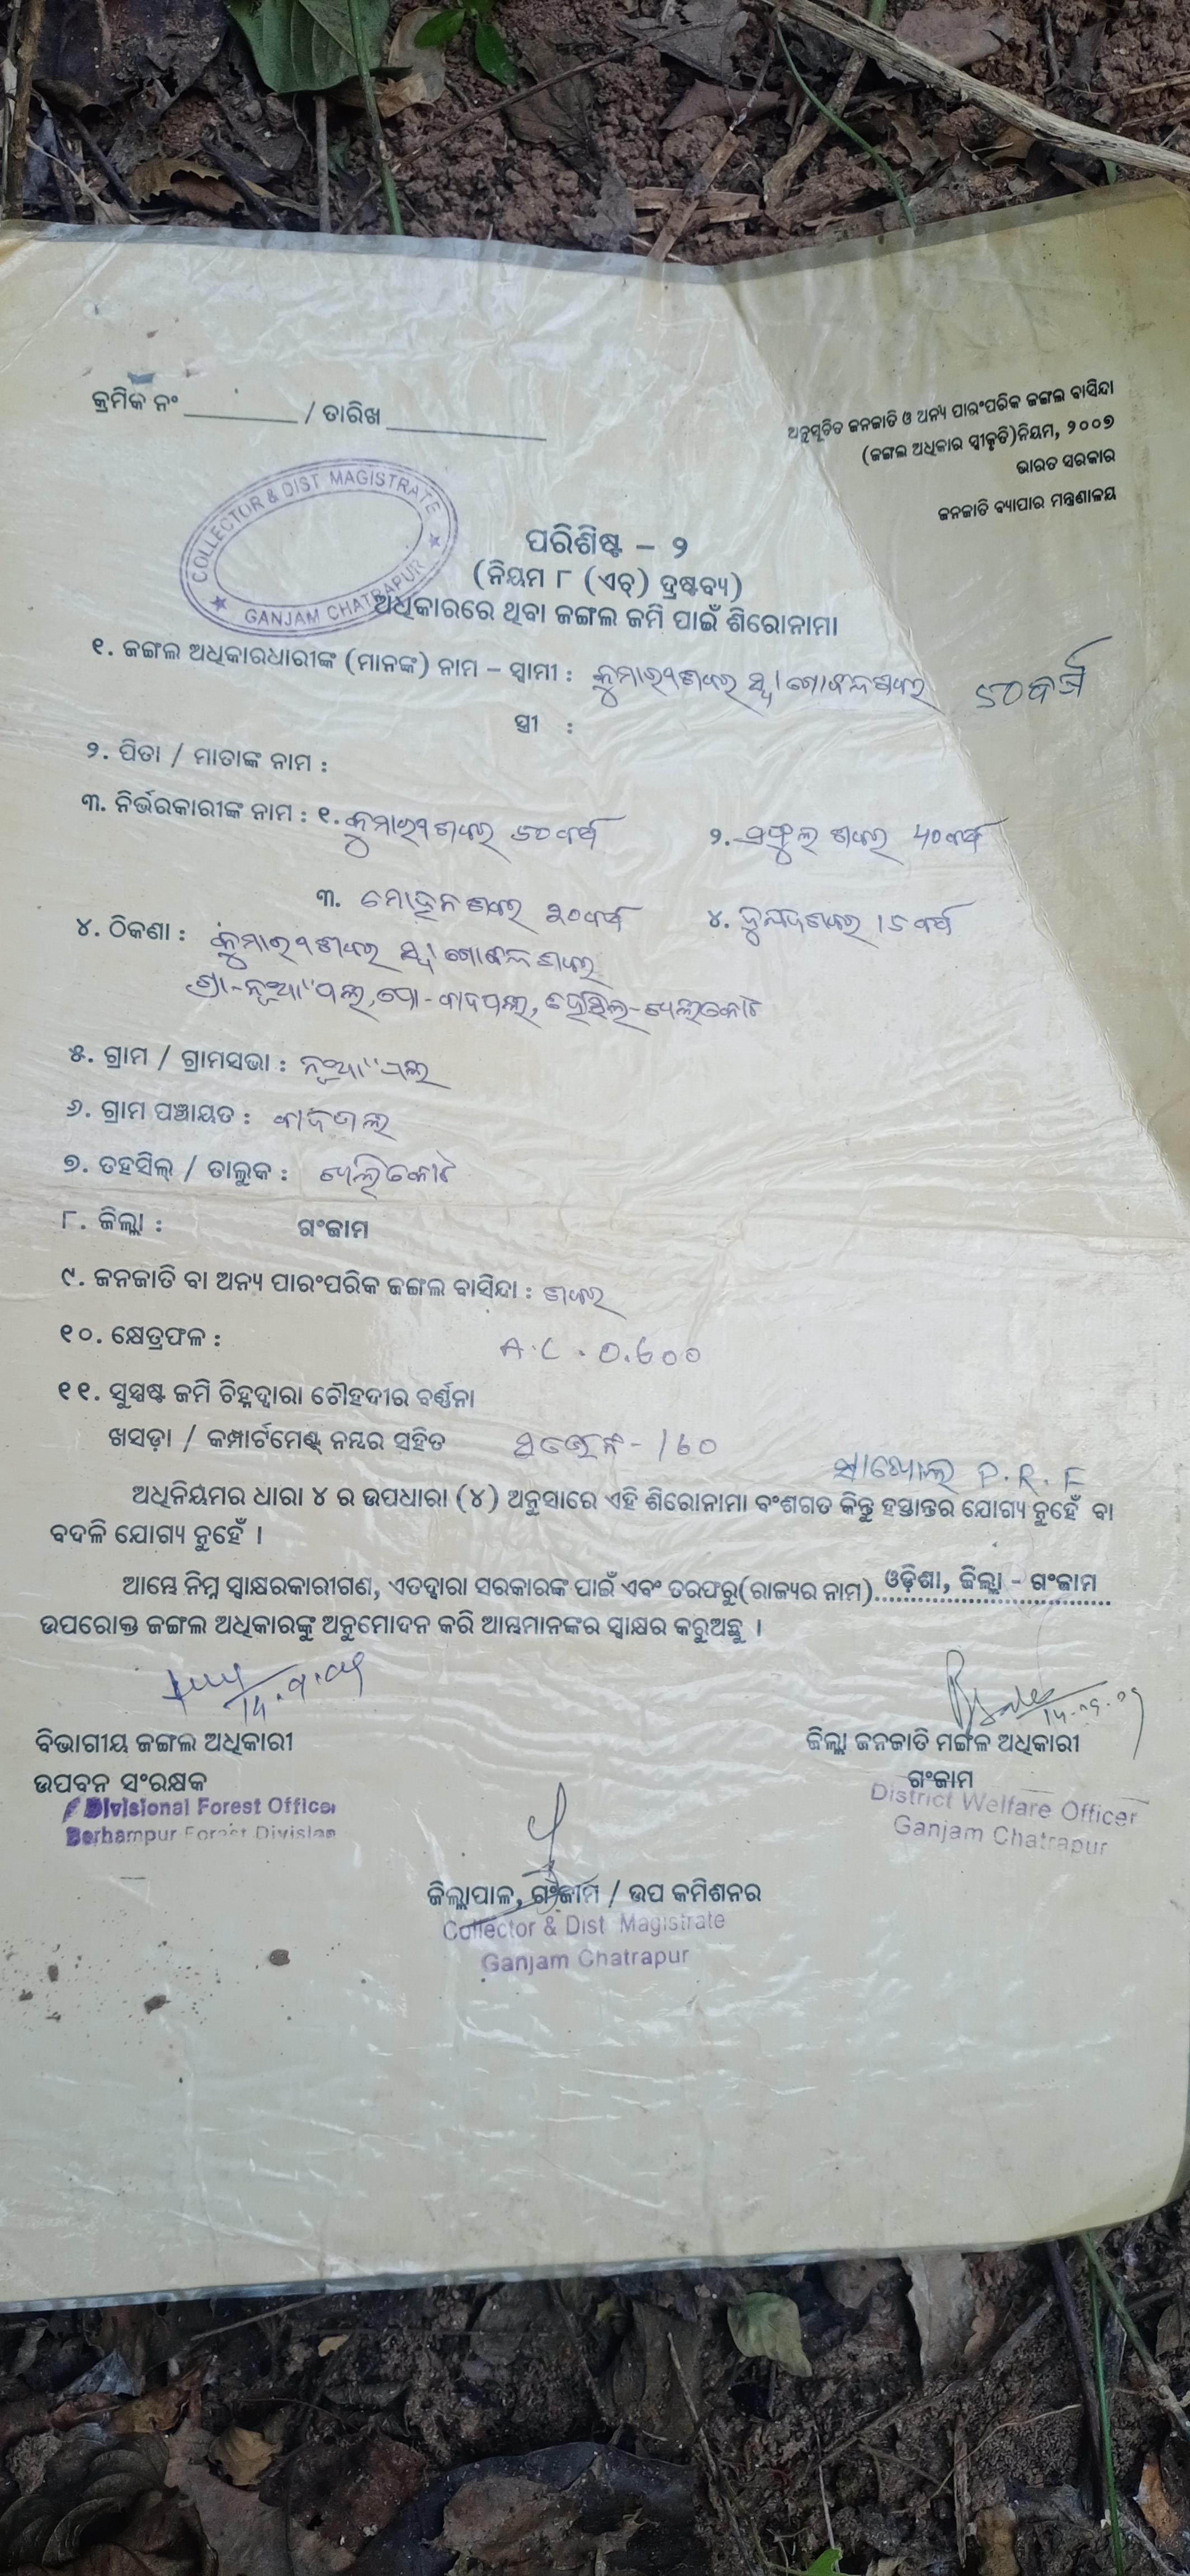 କ୍ରମିକ ନଂ ________ / ତାରିଖ ____________
ଅନୁସୂଚିତ ଜନଜାତି ଓ ଅନ୍ୟ ପାରଂପରିକ ଜଙ୍ଗଲ ବାସିନ୍ଦା
(ଜଙ୍ଗଲ ଅଧିକାର ସ୍ୱୀକୃତି)ନିୟମ, ୨୦୦୭
ଭାରତ ସରକାର
ଜନଜାତି ବ୍ୟାପାର ମନ୍ତ୍ରଣାଳୟ
COLLECTOR & DIST MAGISTRATE
GANJAM CHATRAPUR
ପରିଶିଷ୍ଟ – ୨
(ନିୟମ ୮ (ଏଚ୍) ଦ୍ରଷ୍ଟବ୍ୟ)
ଅଧିକାରରେ ଥିବା ଜଙ୍ଗଲ ଜମି ପାଇଁ ଶିରୋନାମା
୧. ଜଙ୍ଗଲ ଅଧିକାରଧାରୀଙ୍କ (ମାନଙ୍କ) ନାମ – ସ୍ୱାମୀ : ୬୦ବର୍ଷ
ସ୍ତ୍ରୀ :
୨. ପିତା / ମାତାଙ୍କ ନାମ :
୩. ନିର୍ଭରକାରୀଙ୍କ ନାମ : ୧. ଶବର ୬୦ବର୍ଷ ୨. ପ୍ରଫୁଲ ଶବର 40ବର୍ଷ
୩. ମୋହନ ଶବର ୨୦ବର୍ଷ ୪. 15 ବର୍ଷ
୪. ଠିକଣା :
ଗ୍ରା-ନୂଆପଲ୍ଲୀ,
୫. ଗ୍ରାମ / ଗ୍ରାମସଭା :
୬. ଗ୍ରାମ ପଞ୍ଚାୟତ :
୭. ତହସିଲ୍ / ତାଲୁକ :
୮. ଜିଲ୍ଲା : ଗଂଜାମ
୯. ଜନଜାତି ବା ଅନ୍ୟ ପାରଂପରିକ ଜଙ୍ଗଲ ବାସିନ୍ଦା : ଶବର
୧୦. କ୍ଷେତ୍ରଫଳ : A.C. 0.600
୧୧. ସୁସ୍ପଷ୍ଟ ଜମି ଚିହ୍ନଦ୍ୱାରା ଚୌହଦୀର ବର୍ଣ୍ଣନା
ଖସଡ଼ା / କମ୍ପାର୍ଟମେଣ୍ଟ୍ ନମ୍ବର ସହିତ - 160
P.R.F
ଅଧିନିୟମର ଧାରା ୪ ର ଉପଧାରା (୪) ଅନୁସାରେ ଏହି ଶିରୋନାମା ବଂଶଗତ କିନ୍ତୁ ହସ୍ତାନ୍ତର ଯୋଗ୍ୟ ନୁହେଁ ବା
ବଦଳି ଯୋଗ୍ୟ ନୁହେଁ ।
ଆମ୍ଭେ ନିମ୍ନ ସ୍ୱାକ୍ଷରକାରୀଗଣ, ଏତଦ୍ୱାରା ସରକାରଙ୍କ ପାଇଁ ଏବଂ ତରଫରୁ(ରାଜ୍ୟର ନାମ)..ଓଡ଼ିଶା, ଜିଲ୍ଲା - ଗଂଜାମ
ଉପରୋକ୍ତ ଜଙ୍ଗଲ ଅଧିକାରଙ୍କୁ ଅନୁମୋଦନ କରି ଆମ୍ଭମାନଙ୍କର ସ୍ୱାକ୍ଷର କରୁଅଛୁ ।
14.9.09
14.09.09
ବିଭାଗୀୟ ଜଙ୍ଗଲ ଅଧିକାରୀ
ଉପବନ ସଂରକ୍ଷକ
Divisional Forest Officer
Berhampur Forest Division
ଜିଲ୍ଲା ଜନଜାତି ମଙ୍ଗଳ ଅଧିକାରୀ
ଗଂଜାମ
District Welfare Officer
Ganjam Chatrapur
ଜିଲ୍ଲାପାଳ, ଗଂଜାମ / ଉପ କମିଶନର
Collector & Dist Magistrate
Ganjam Chatrapur